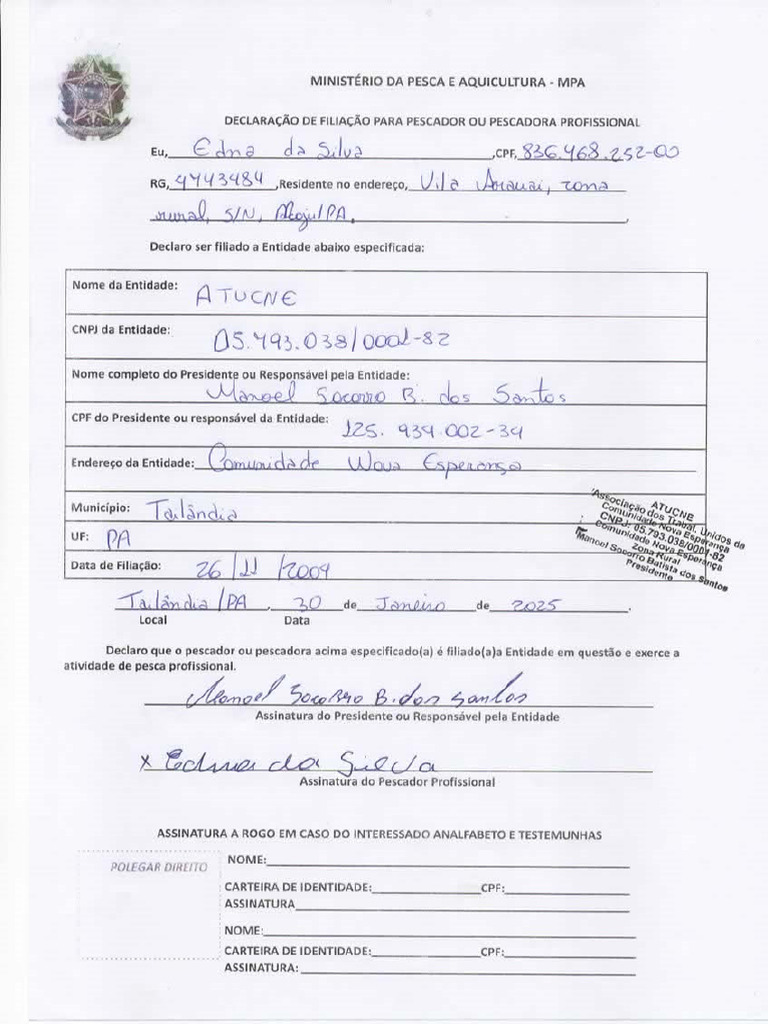 MINISTÉRIO DA PESCA E AQUICULTURA - MPA
DECLARAÇÃO DE FILIAÇÃO PARA PESCADOR OU PESCADORA PROFISSIONAL
Eu, Edna da Silva ,CPF, 836.468.252-00
RG, 4743484 ,Residente no endereço, Vila Arauai, zona
rural, S/N, Moju/PA,
Declaro ser filiado a Entidade abaixo especificada:
Nome da Entidade: ATUCNE
CNPJ da Entidade: 05.793.038/0001-82
Nome completo do Presidente ou Responsável pela Entidade:
Manoel Socorro B. dos Santos
CPF do Presidente ou responsável da Entidade: 125. 934.002-34
Endereço da Entidade: Comunidade Nova Esperança
Município: Tailândia
UF: PA
Data de Filiação: 26/11/2009
ATUCNE
Associação dos Trabal. Unidos da
Comunidade Nova Esperança
CNPJ: 05.793.038/0001-82
Comunidade Nova Esperança
Zona Rural
Manoel Socorro Batista dos Santos
Presidente
Tailândia/PA, 30 de Janeiro de 2025.
Local Data
Declaro que o pescador ou pescadora acima especificado(a) é filiado(a)a Entidade em questão e exerce a
atividade de pesca profissional.
Manoel Socorro B. dos Santos
Assinatura do Presidente ou Responsável pela Entidade
x Edna da Silva
Assinatura do Pescador Profissional
ASSINATURA A ROGO EM CASO DO INTERESSADO ANALFABETO E TESTEMUNHAS
POLEGAR DIREITO
NOME:
CARTEIRA DE IDENTIDADE: CPF:
ASSINATURA
NOME:
CARTEIRA DE IDENTIDADE: CPF:
ASSINATURA: